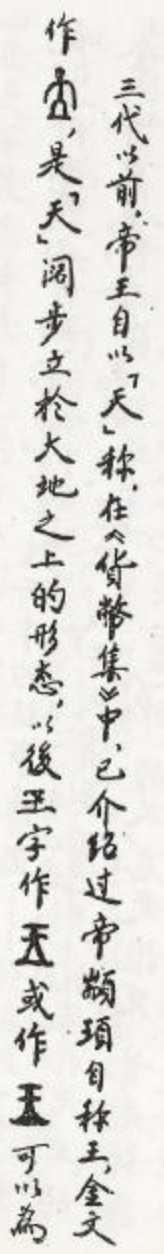 三代以前,帝王自以「天」称,在《貨幣集》中,已介紹过帝颛頊自称王,金文
作,是「天」闊步立於大地之上的形态,以後王字作或作可以為